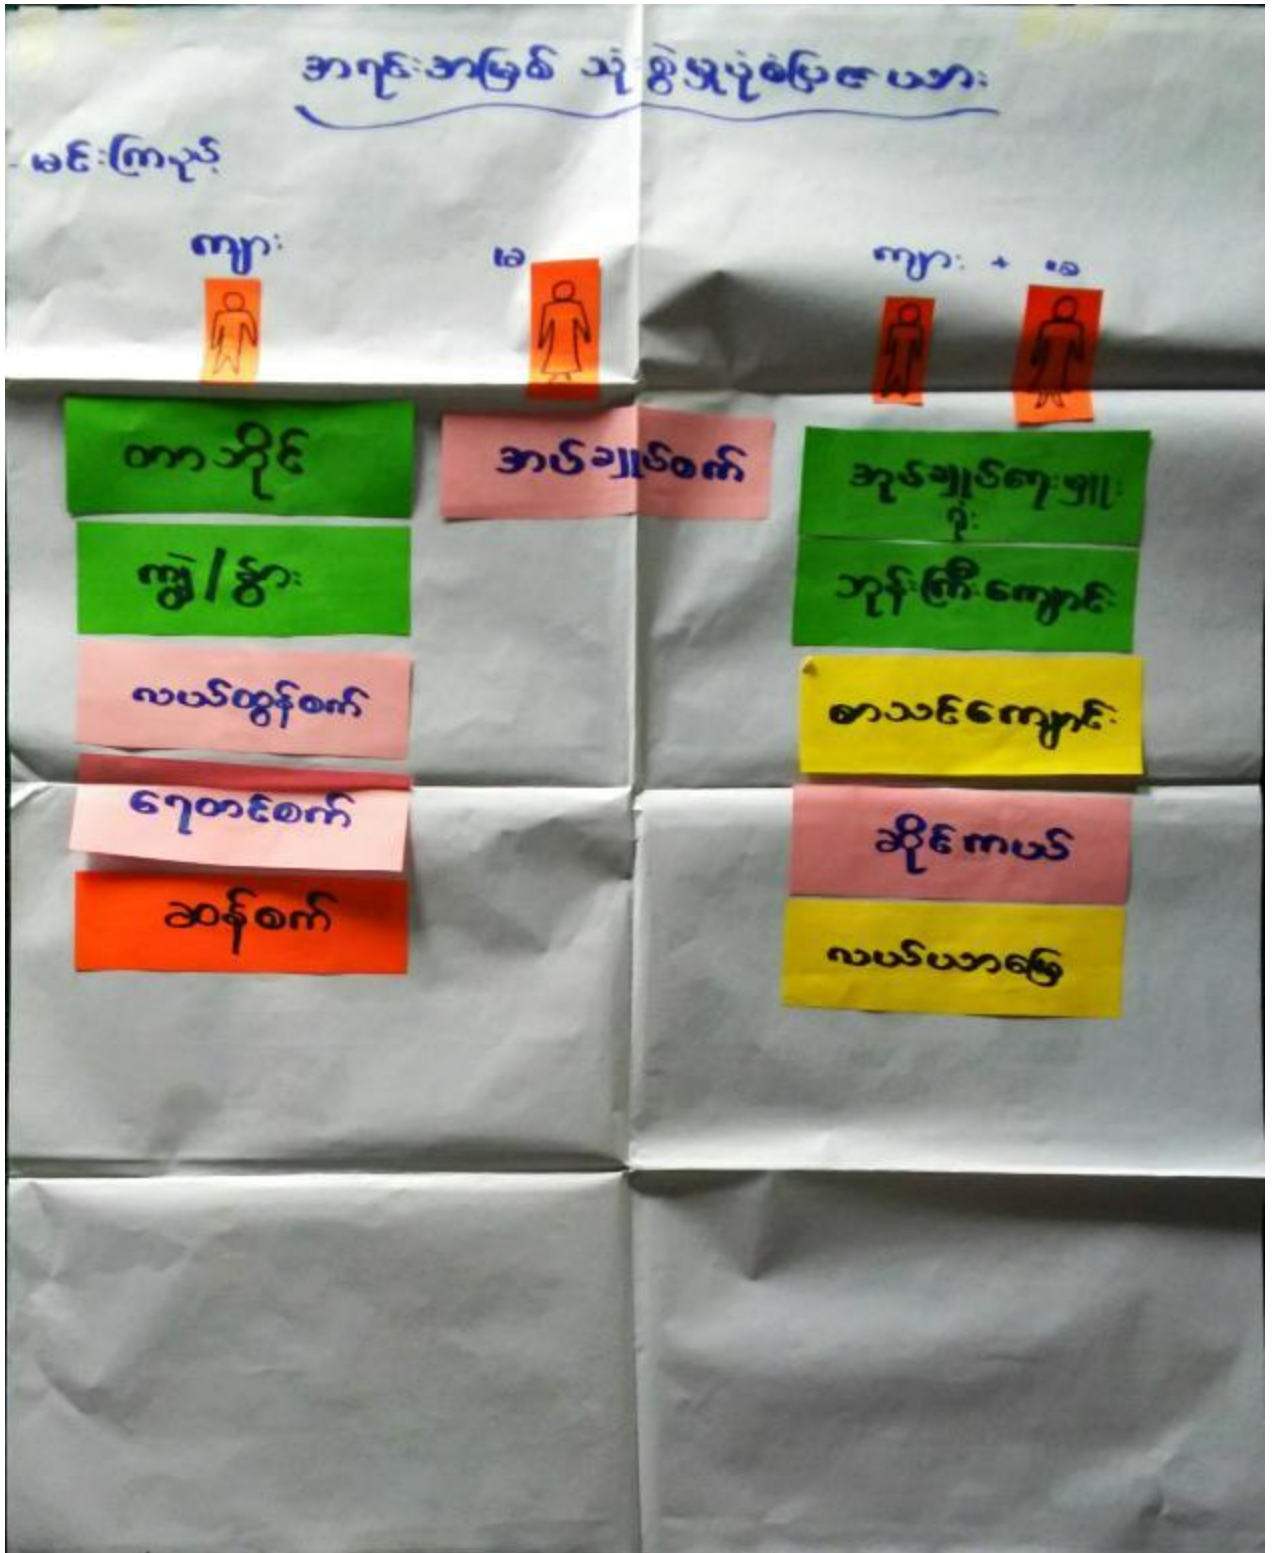 အရင်းအမြစ် သုံးစွဲမှုပုံစံပြဇယား
- မင်းကြပုည့်
ကျား
မ
ကျား + မ
တာဘိုင်
ကျွဲ/နွား
လယ်ထွန်စက်
ရေတင်စက်
ဆန်စက်
အပ်ချုပ်စက်
အုပ်ချုပ်ရေးမှူး
ရုံး
ဘုန်းကြီးကျောင်း
စာသင်ကျောင်း
ဆိုင်ကယ်
လယ်ယာမြေ